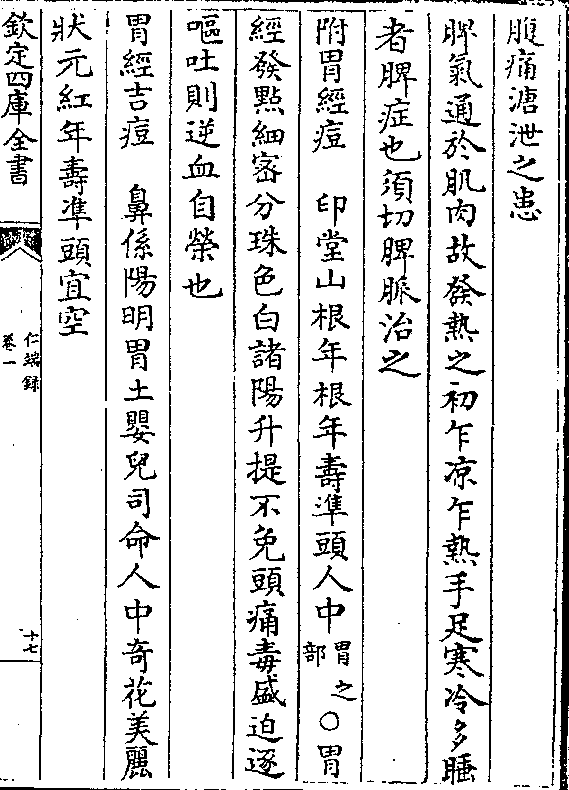 腹痛溏泄之患
脾氣通於肌肉故發熱之初乍凉乍熱手足寒冷多睡
者脾症也須切脾脈治之
附胃經痘　印堂山根年根年壽準頭人中胃之部○胃
經發點細密分珠色白諸陽升提不免頭痛毒盛迫逐
嘔吐則逆血自榮也
胃經吉痘　鼻係陽明胃土嬰兒司命人中奇花美麗
狀元紅年壽準頭宜空
欽定四庫全書
仁端録
卷一
十七